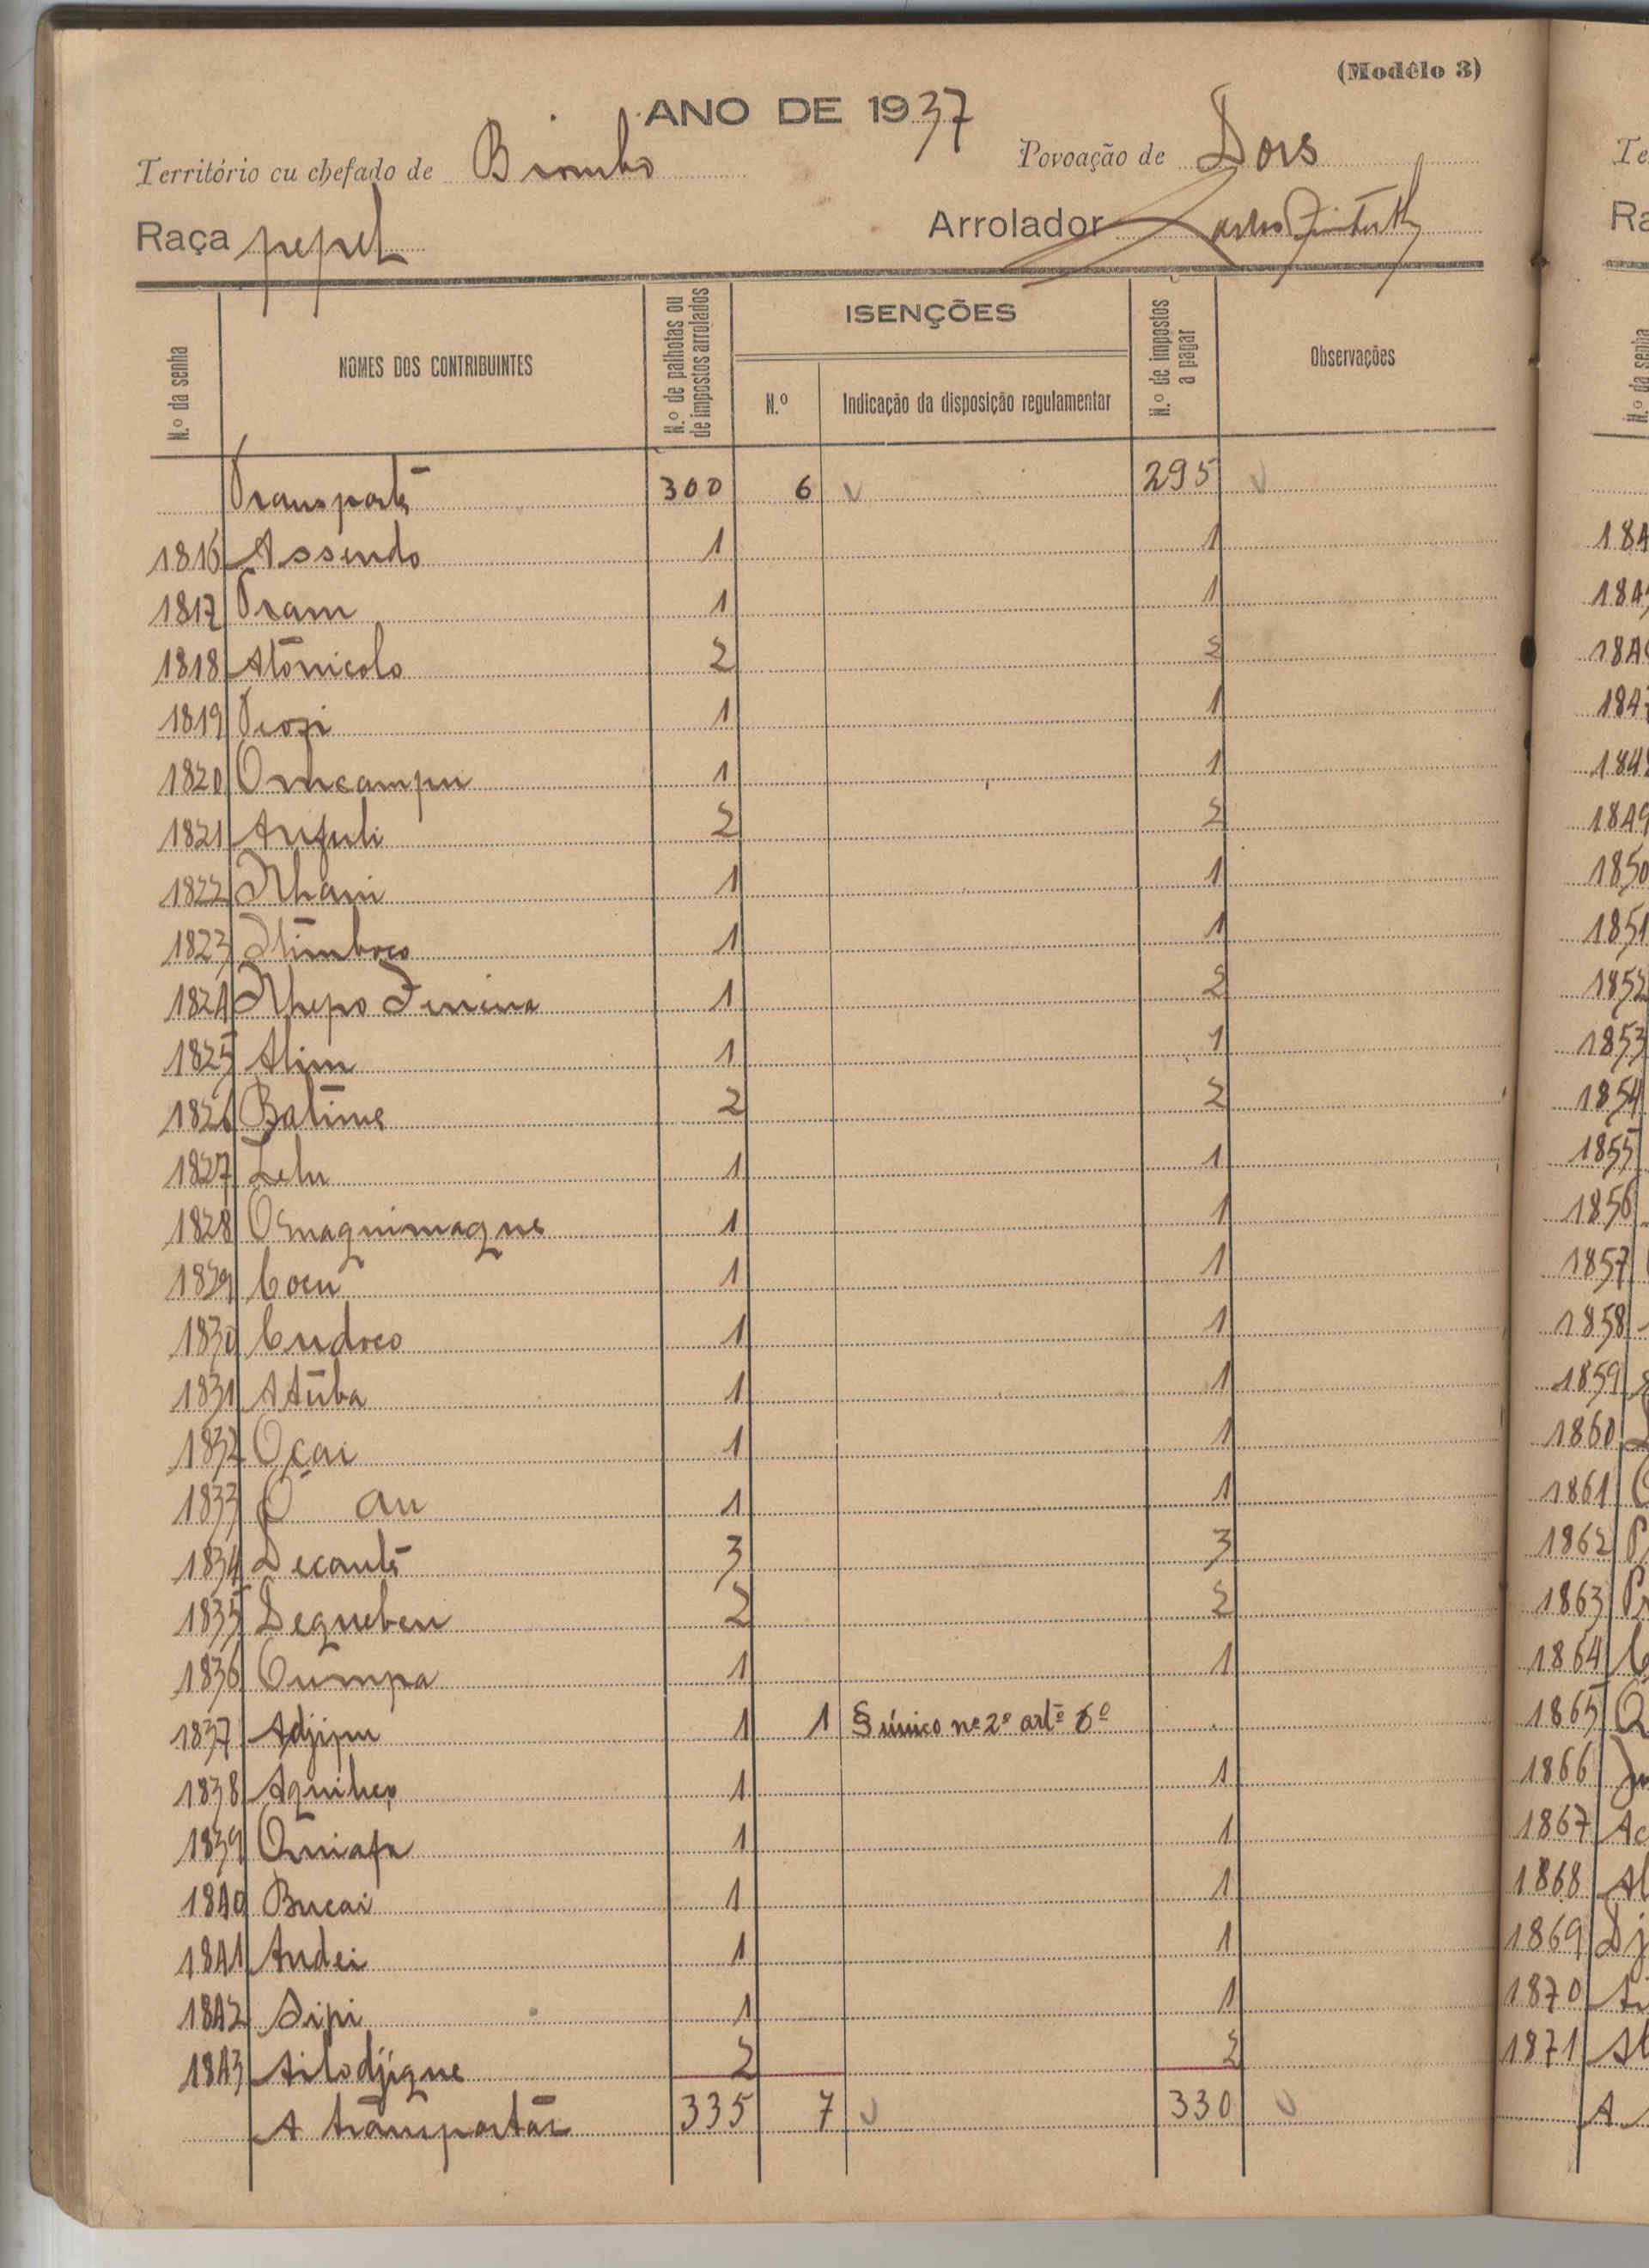 (Modêlo 3)
ANO DE 1937
Território ou chefado de Biombo Povoação de Dors
Raça pepel Arrolador
N.º da senha NOMES DOS CONTRIBUINTES N.º de palhotas ou de impostos arrolados ISENÇÕES N.º Indicação da disposição regulamentar N.º de impostos a pagar Observações
Transporte 300 6 295
1816 Assendo 1 1
1817 Tram 1 1
1818 Atonicolo 2 2
1819 1 1
1820 1 1
1821 2 2
1822 1 1
1823 1 1
1824 1 2
1825 Alim 1 1
1826 Batime 2 2
1827 Lelu 1 1
1828 Omaquimaque 1 1
1829 Coeu 1 1
1830 Cudoco 1 1
1831 Atuba 1 1
1832 Ocai 1 1
1833 O au 1 1
1834 Decante 3 3
1835 Dequebeu 2 2
1836 Oumpa 1 1
1837 Adjipu 1 1 § único nº 2º artº 6º
1838 1 1
1839 Quiafa 1 1
1840 Bucai 1 1
1841 Andei 1 1
1842 Sipi 1 1
1843 Ailodjique 2 2
A transportar 335 7 330
Te
Ra
N.º da senha
184
184
184
1847
184
1849
1850
1851
1852
1853
1854
1855
1856
1857
1858
1859
1860
1861
1862
1863
1864
1865
1866
1867 Ac
1868 Al
1869 Dj
1870
1871 Al
A